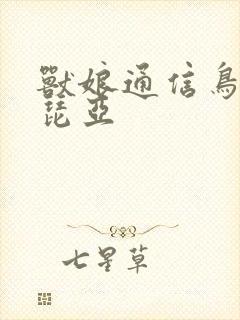 獸娘通信鳥
琵亞
七星草